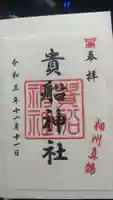 奉拝
相州真鶴
貴船神社
貴船神社
令和三年十二月十一日